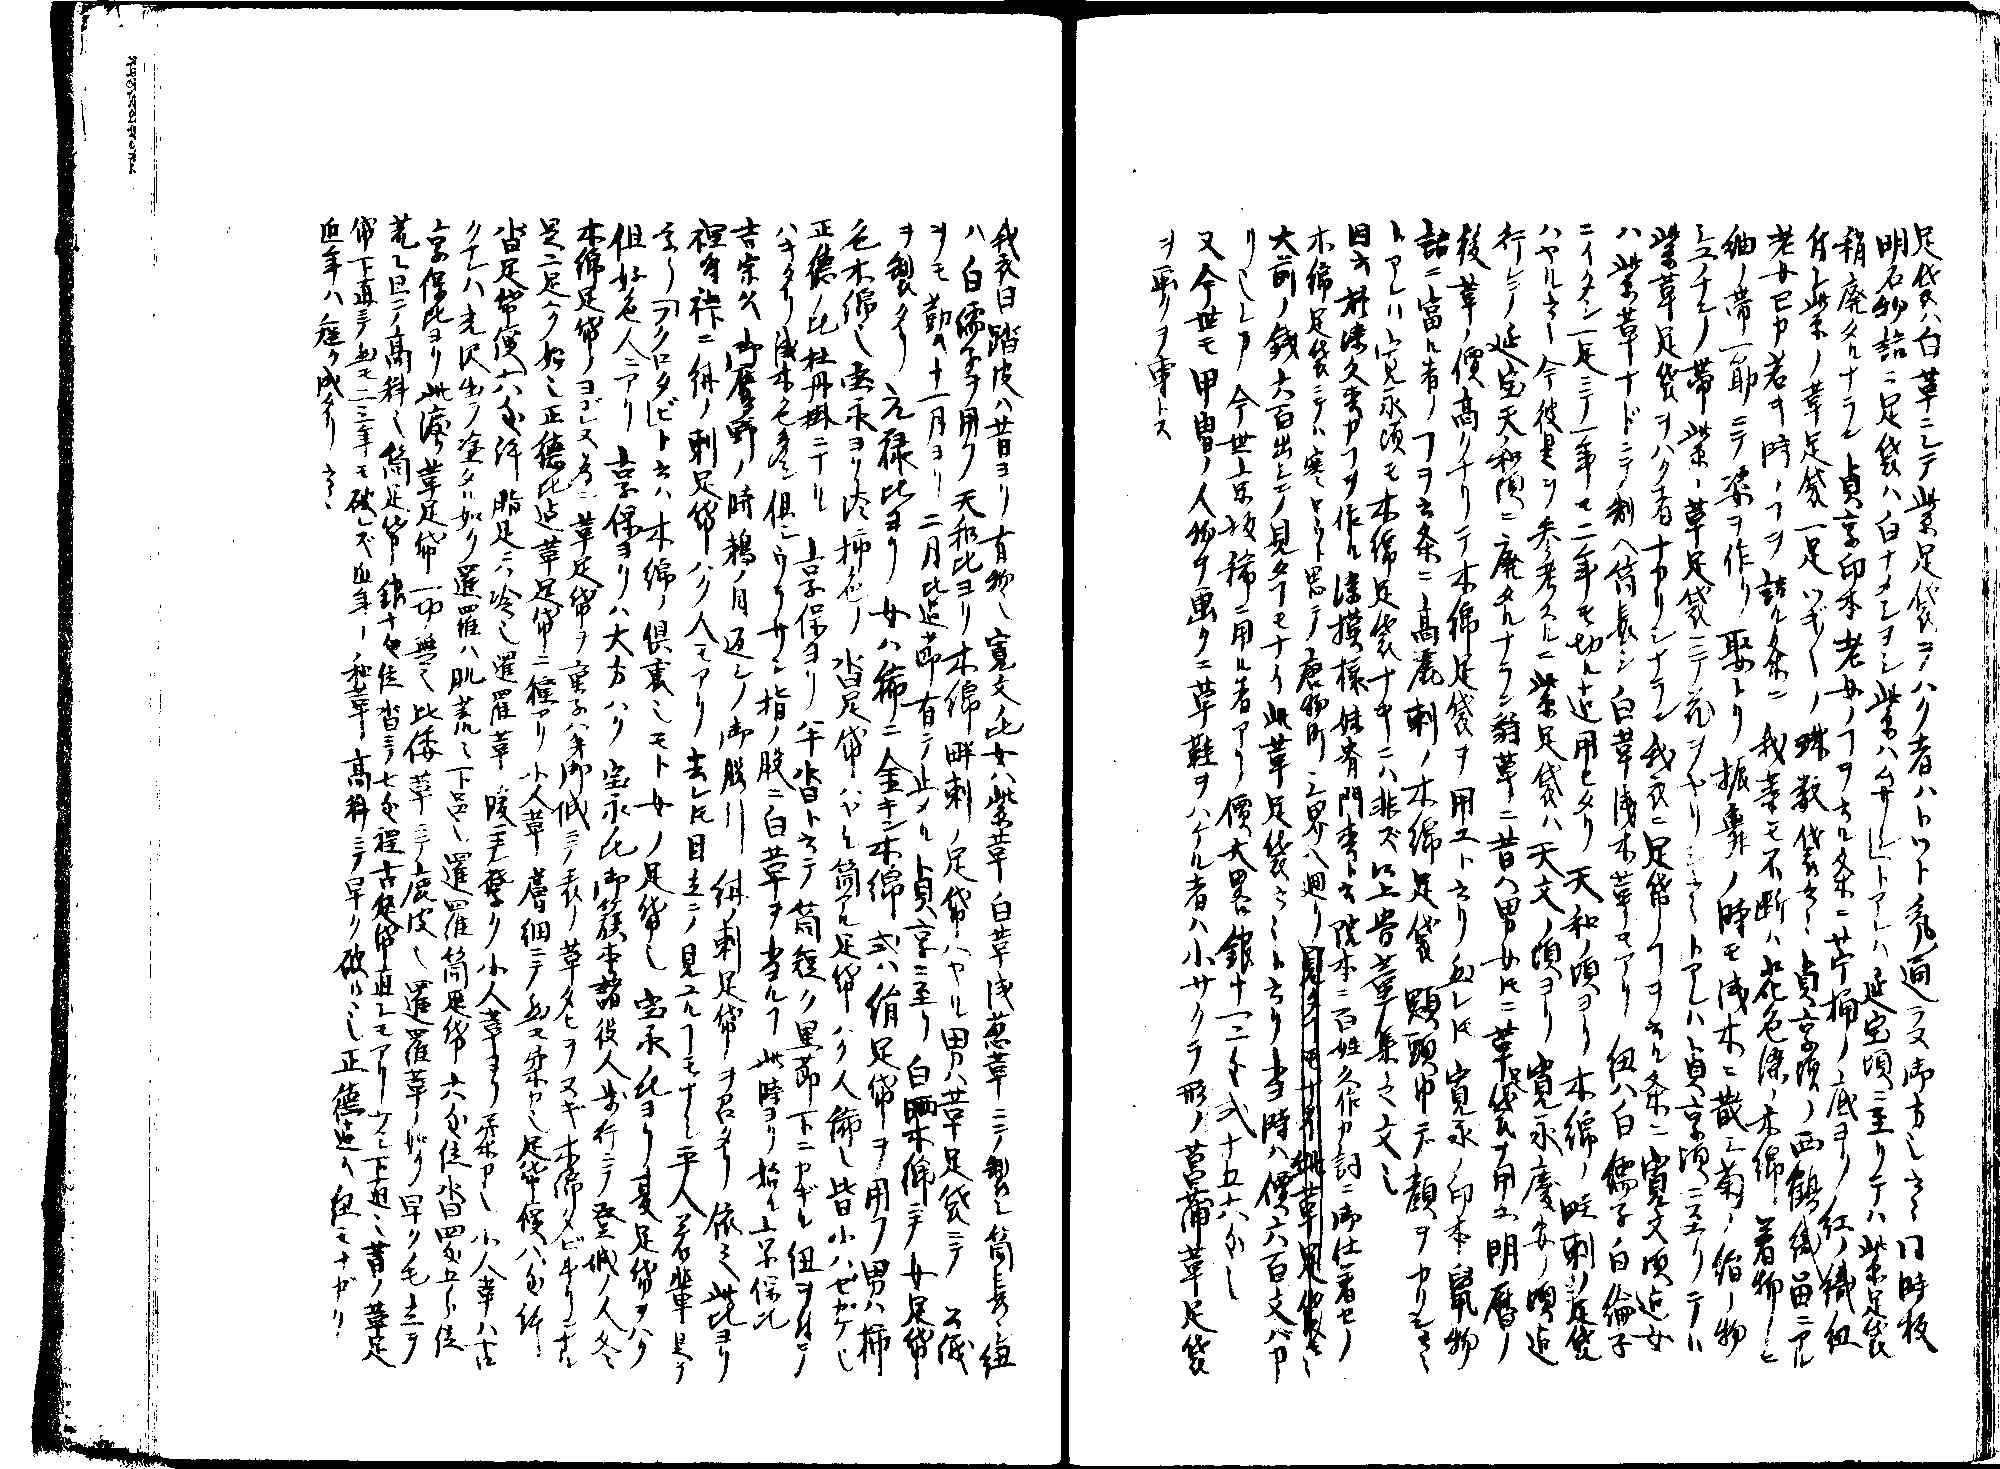 足袋ハ白革ニシテ紫足袋ヲハク者ハトツト亂通ラヌ御方也云々 同時板
明石物語ニ足袋ハ白ナメシヲシ紫ハ トアレハ延宝頃ニ至リテハ紫足袋
稍廃タルナラン貞享印本老女ノコヲ云ル条ニ苧桶ノ底ヨリ紅ノ織紐
付シ紫ノ革足袋一足ツギ〳〵ノ珠数袋云々貞享頃ノ西鶴織留ニアル
老女已カ若キ時ノコヲ語ル条ニ我等モ不断ハ花色染ノ木綿着物シヒ
紬ノ帯一筋ニテ姿ヲ作リ娶トリ振舞ノ時モ浅木ニ散シ菊ノ縮ノ物
ミエチンノ帯紫ノ革足袋ニテ花ヲヤリシ云々トアレハ貞享頃ニ至リテハ
紫革足袋ヲハク者ナカリシナラン我衣ニ足袋ノコヲ云ル条ニ寛文頃迄女
ハ紫革ナドニテ制ヘ筒長シ白革浅木革モアリ紐ハ白儒子白綸子
ニイタシ一足ニテ一年モ二年モ切ル迄用ヒタリ天和ノ頃ヨリ木綿ノ畦刺シ足袋
ハヤル云々今彼是ヲ参考スルニ紫足袋ハ天文ノ頃ヨリ寛永慶安ノ頃迄
行レシ延宝天和頃ニ廃タルナラン翁草ニ昔ハ男女トモニ革袋ヲ用ユ明暦ノ
後革ノ價高クナリテ木綿足袋ヲ用ユト云リ然レトモ寛永ノ印本鼠物
語ニ富ル者ノコヲ云条ニ高麗刺ノ木綿足袋頭巾デ顔ヲカクシ云々
トアレハ寛永頃モ木綿足袋ナキニハ非ズ以上昔革集之文也
因ニ 染久松カコヲ作ル染模様妹背門松ト云院本ニ百姓久作カ詞ニ御仕着セノ
木綿足袋ニテハ寒カロウト思テ唐物町三界ヘ廻リ見タコモナイ此革足袋云々
大前ノ銭六百出シテ見タコモナイ此革足袋云々ト云リ当時ハ價六百文バカ
リ也シヲ今世京坂稀ニ用ル者アリ價大畧銀十一二匁弐十五六匁也
又今世モ甲冑ノ人物ヲ画クニ草鞋ヲハケル者ハ小サクラ形ノ菖蒲革足袋
ヲ画クヲ専トス
我衣曰踏皮ハ昔ヨリ有物也寛文ノ比女ハ紫革白革浅葱革ニテ製シ筒長ク紐
ハ白儒子ヲ用フ天和比ヨリ木綿畔刺ノ足袋ハヤル男ハ革足袋ニテ公儀
ヲモ勤ム十一月ヨリ二月比迄節有テ止ル貞享ニ至リ白晒木綿ニテ女足袋
ヲ製タリ元禄比ヨリ女ハ稀ニ金キン木綿或ハ絹足袋ヲ用フ男ハ柿
色木綿也宝永ヨリ渋柿色ノ沓足袋ハヤル筒アル足袋ハク人稀也皆小ハゼガケ也
正徳ノ比牡丹掛ニナル 享保ヨリ半沓ト云テ筒短ク黒節下ニカギル紐ヲ付テ
ハキタリ浅木色多シ但シウラサシ指ノ股ニ白革ヲ当ルコ此時ヨリ始ル享保比
吉宗公御鷹野ノ時鵜ノ目返シノ御股引紺ノ刺足袋ヲ召タリ依之此比ヨリ
裡付袴ニ紺ノ刺足袋ハク人モアリ去レトモ目立テ見ユルコモナシ平人若輩是ヲ
云リフクロタビト云ハ木綿ノ倶裏也モト女ノ足袋也宝永比ヨリ夏足袋ヲハク
但好色人ニアリ享保ヨリハ大方ハク宝永比御簱本諸役人歩行ニテ登城ノ人冬
木綿足袋ノヨゴレヌ為ニ革足袋ヲ菓子ハキ御城ニテ表ノ革タヒヲヌギ木綿タビ計リニナル
是二足ハク始也正徳比迄革足袋ニ二種アリ小人革膚細ニテ至テ柔カ也足袋價八匁許
沓足袋價六匁許脂足ニハ冷シ暹羅革暖ニテ登ク小人革ヨリ柔カ也小人革ハ古
クナレハ光沢出テ塗タル如ク暹羅ハ肌荒シ下品也暹羅筒足袋六匁位沓四匁五分位
享保比ヨリ此膚革足袋一切無之比倭革ニテ鹿皮也暹羅革ノ如ク早ク毛立テ
荒シ但シ高料也筒足袋銀十匁位沓ニテ七匁程古足袋直シモアリウラ下迫ニ昔ノ革足
袋下直ニテ然モ二三年モ破レズ近年ノ和革ハ高料ニテ早ク破ル也正徳迄ハ紐モナガク
近年ハ短ク成タリ云々